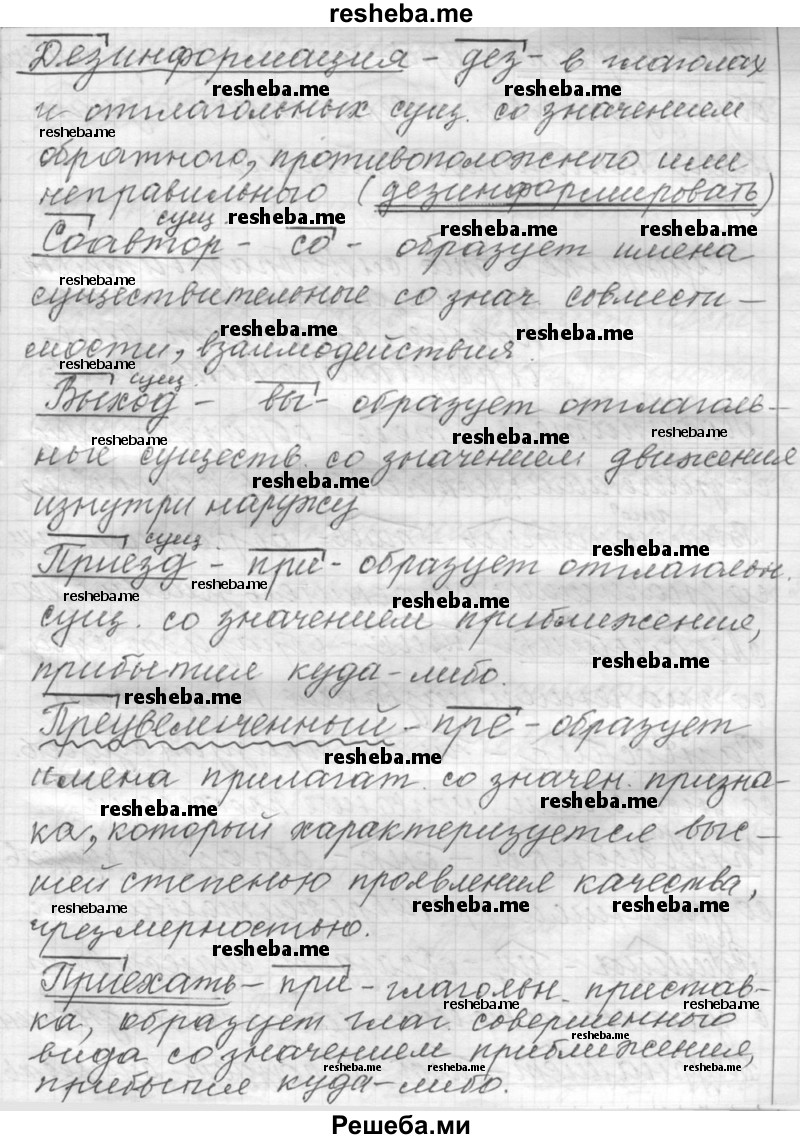 resheba.me
Дезинформация - дез- в глаголах
resheba.me resheba.me
и отглагольных сущ. со значением
resheba.me
обратного, противоположного или
неправильного (дезинформировать)
сущ resheba.me
Соавтор - со - образует имена
resheba.me resheba.me
resheba.me
существительные со знач. совмести-
resheba.me resheba.me
мости, взаимодействия.
resheba.me
сущ.
Выход - вы- образует отглаголь-
resheba.me resheba.me resheba.me
ные существ. со значением движения
resheba.me
изнутри наружу
сущ resheba.me
Приезд - при - образует отглагольн.
resheba.me resheba.me
resheba.me resheba.me
сущ. со значением приближения,
resheba.me
прибытия куда-либо.
resheba.me
Преувеличенный - пре - образует
resheba.me
имена прилагат. со значен. призна-
resheba.me resheba.me
ка, который характеризуется выс-
шей степенью проявления качества,
resheba.me resheba.me resheba.me
чрезмерностью.
resheba.me
Приехать - при - глагольн. пристав-
resheba.me resheba.me
ка, образует глаг. совершенного
resheba.me
вида со значением приближения,
resheba.me resheba.me resheba.me
прибытия куда-либо.
Решеба.ми